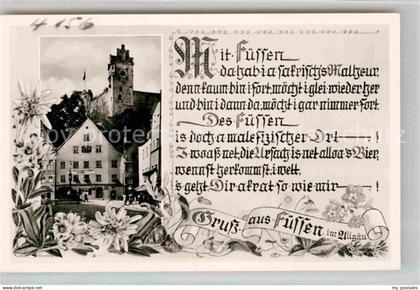 4 156
Mit Füssen
da hab i a sakrisch's Malheur,
denn kaum bin i fort, möcht i glei wieder her
und bin i dann da, möcht i gar nimmer fort.
Des Füssen
is doch a malefizischer Ort — !
I woaß net, die Ursach is net alloa's Bier,
wennst herkommst, i wett,
s' geht Dir akrat so wie mir — !
Gruß aus Füssen im Allgäu
my-postales